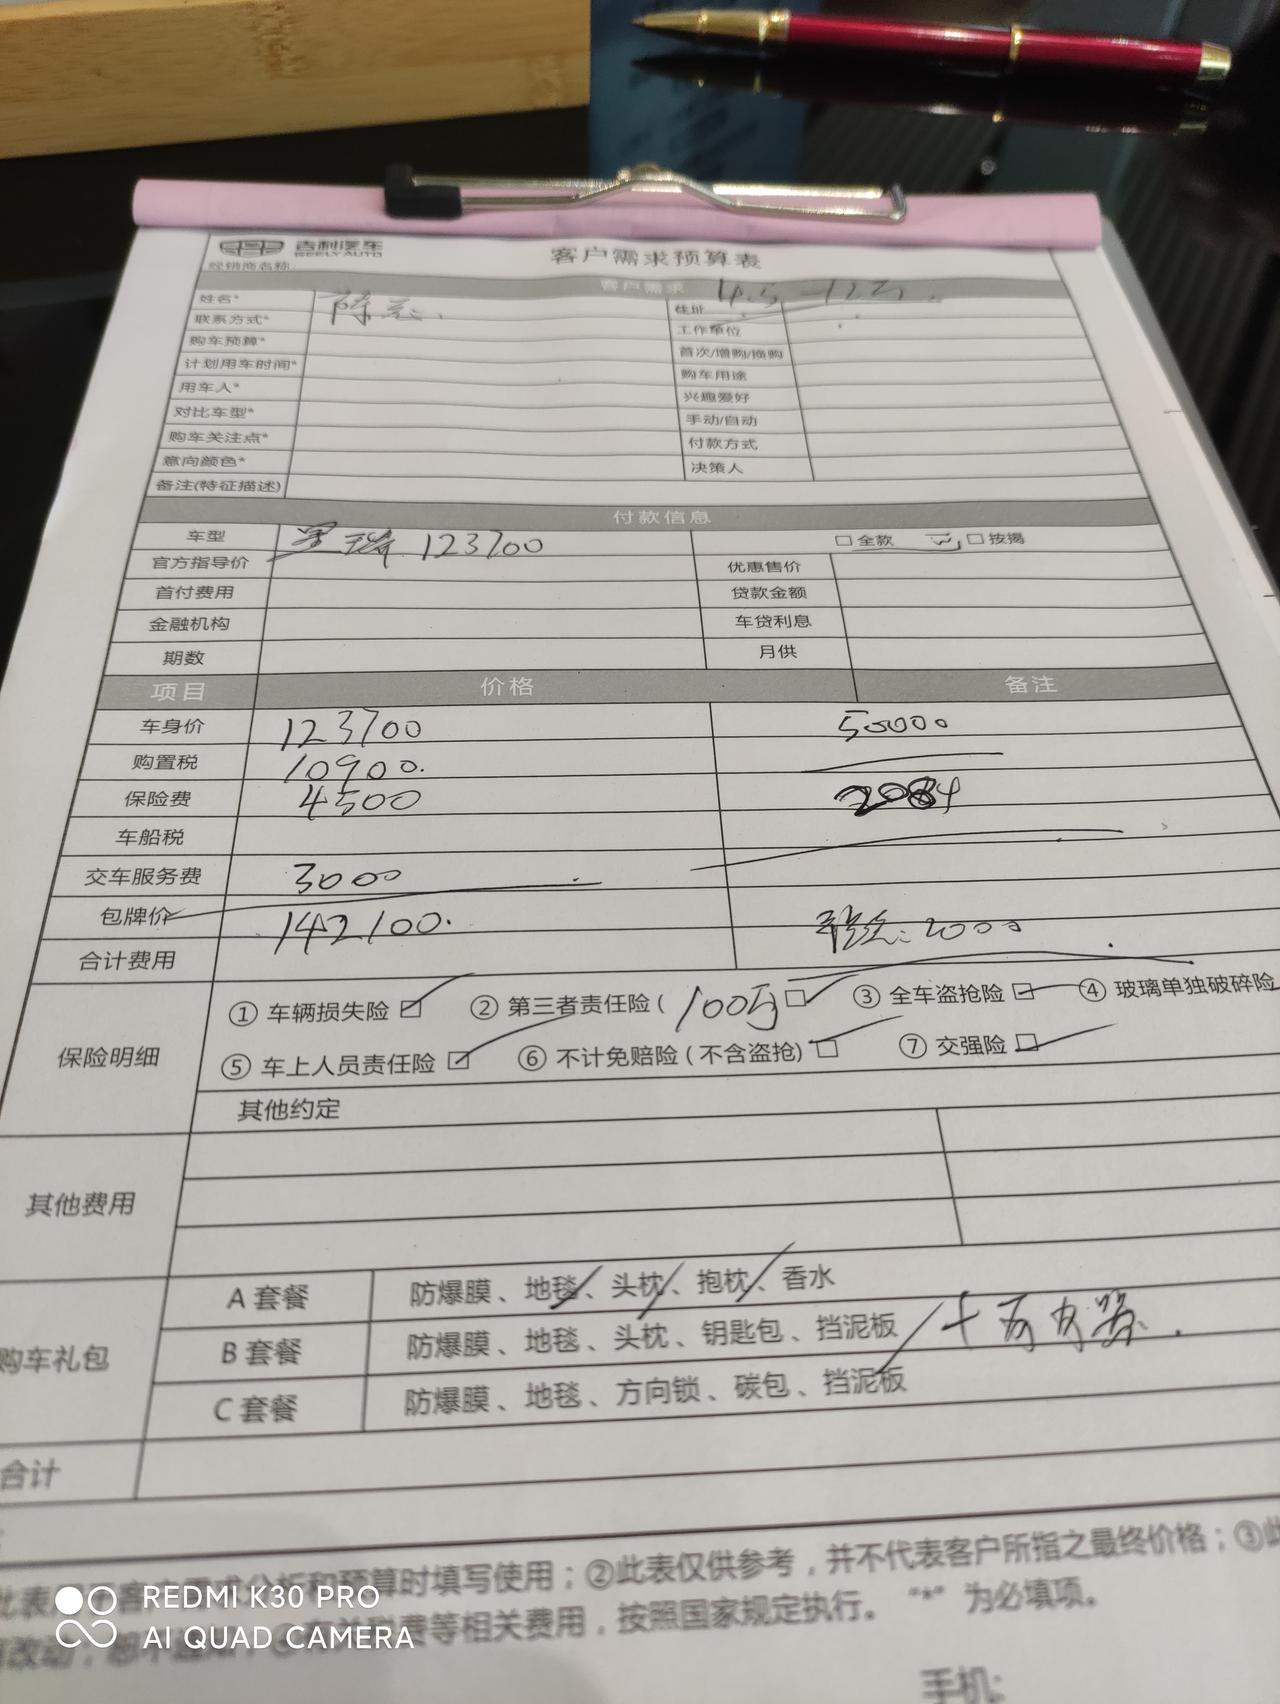 吉利汽车
GEELY AUTO
客户需求预算表
经销商名称:
客户需求
姓名*
住址
联系方式*
工作单位
购车预算*
首次/增购/换购
计划用车时间*
购车用途
用车人*
兴趣爱好
对比车型*
手动/自动
购车关注点*
付款方式
意向颜色*
决策人
备注(特征描述)
付款信息
车型 123700 □全款 □按揭
官方指导价 优惠售价
首付费用 贷款金额
金融机构 车贷利息
期数 月供
项目 价格 备注
车身价 123700 50000
购置税 10900.
保险费 4500 2084
车船税
交车服务费 3000
包牌价 142100. 2000
合计费用
保险明细
①车辆损失险□ ②第三者责任险(100万□ ③全车盗抢险□ ④玻璃单独破碎险
⑤车上人员责任险□ ⑥不计免赔险(不含盗抢)□ ⑦交强险□
其他约定
其他费用
购车礼包
A套餐 防爆膜、地毯、头枕、抱枕、香水
B套餐 防爆膜、地毯、头枕、钥匙包、挡泥板
C套餐 防爆膜、地毯、方向锁、碳包、挡泥板
合计
时填写使用；②此表仅供参考，并不代表客户所指之最终价格；③此
费等相关费用，按照国家规定执行。"*"为必填项。
手机:
REDMI K30 PRO
AI QUAD CAMERA